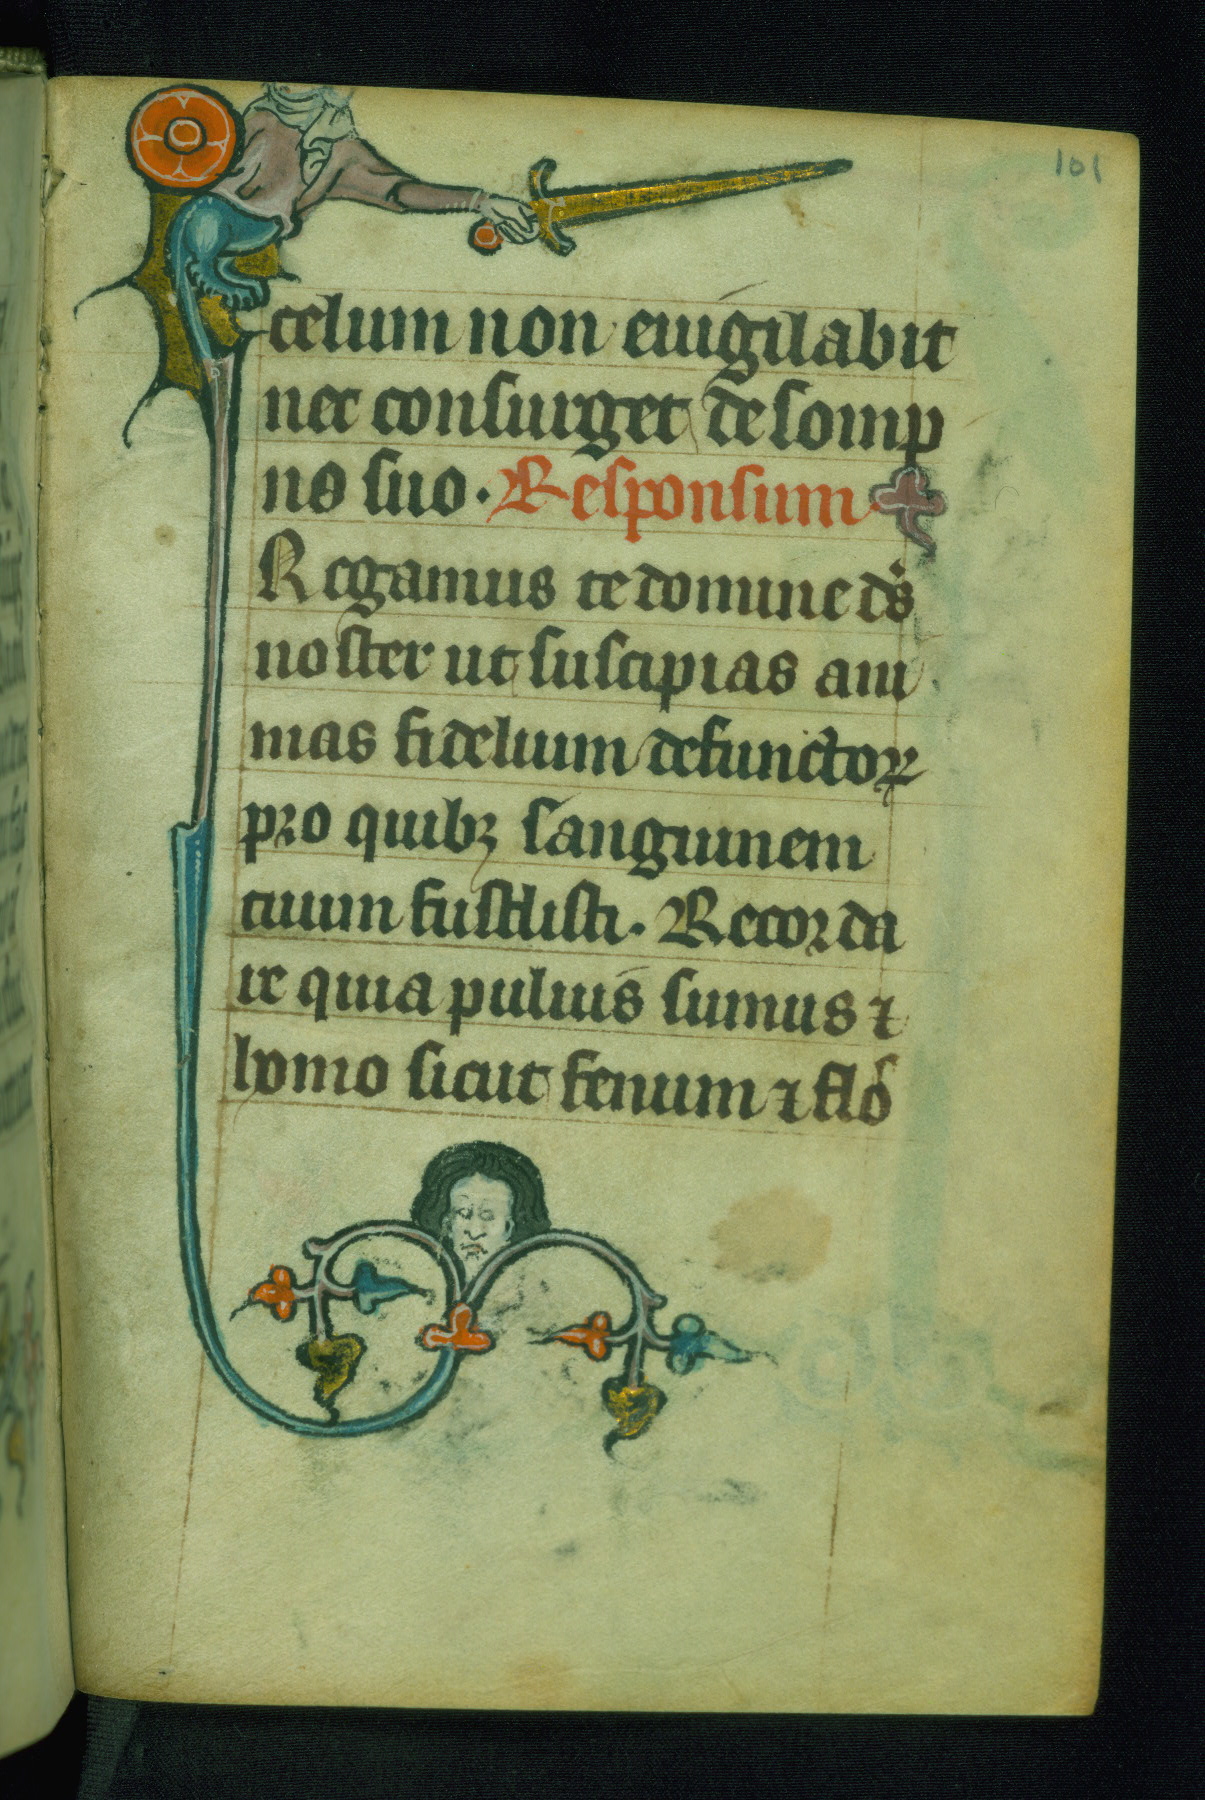 101
celum non euigilabit
nec consurget de somp
no suo. Responsum
Rogamus te domine ds
noster ut suscipias ani
mas fidelium defunctoꝝ
pro quibꝫ sanguinem
tuum fustlisti. Recorda
re quia puluis sumus ⁊
homo sicut fenum ⁊ flos